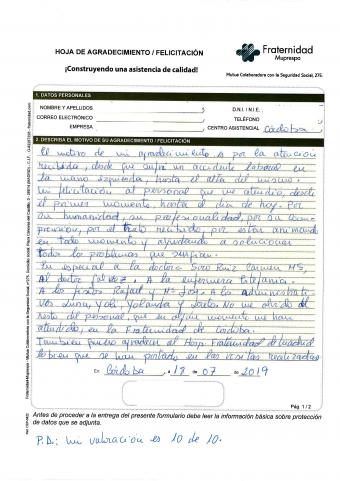 HOJA DE AGRADECIMIENTO / FELICITACIÓN
¡Construyendo una asistencia de calidad!
Fraternidad
Muprespa
Mutua Colaboradora con la Seguridad Social, 275.
1. DATOS PERSONALES
NOMBRE Y APELLIDOS
D.N.I. / N.I.E.
CORREO ELECTRÓNICO
TELÉFONO
EMPRESA
CENTRO ASISTENCIAL Córdoba
2. DESCRIBA EL MOTIVO DE SU AGRADECIMIENTO / FELICITACIÓN
El motivo de mi agradecimiento es por la atención
recibida, desde que sufrí un accidente laboral en
la mano izquierda, hasta el alta del mismo.
Mi felicitación al personal que me atendió, desde
el primer momento, hasta el día de hoy. Por
su humanidad, su profesionalidad, por su com-
prensión, por el trato recibido, por estar animando
en todo momento y ayudando a solucionar
todos los problemas que surgían.
En especial a la doctora Ruiz Carmen Mª,
Al doctor, A la enfermera Estefanía.
A los fisios Rafael y Mª José. A los administrati-
vos Luna, Yoli, Yolanda y. No me olvido del
resto del personal, que en algún momento me han
atendido, en la Fraternidad de Córdoba.
También quiero agradecer al Hosp. Fraternidad de Madrid
lo bien que se han portado en las visitas realizadas
En Córdoba, 18 - 07 - 2019
Pág. 1 / 2
Antes de proceder a la entrega del presente formulario debe leer la información básica sobre protección
de datos que se adjunta.
P.D: mi valoración es 10 de 10.